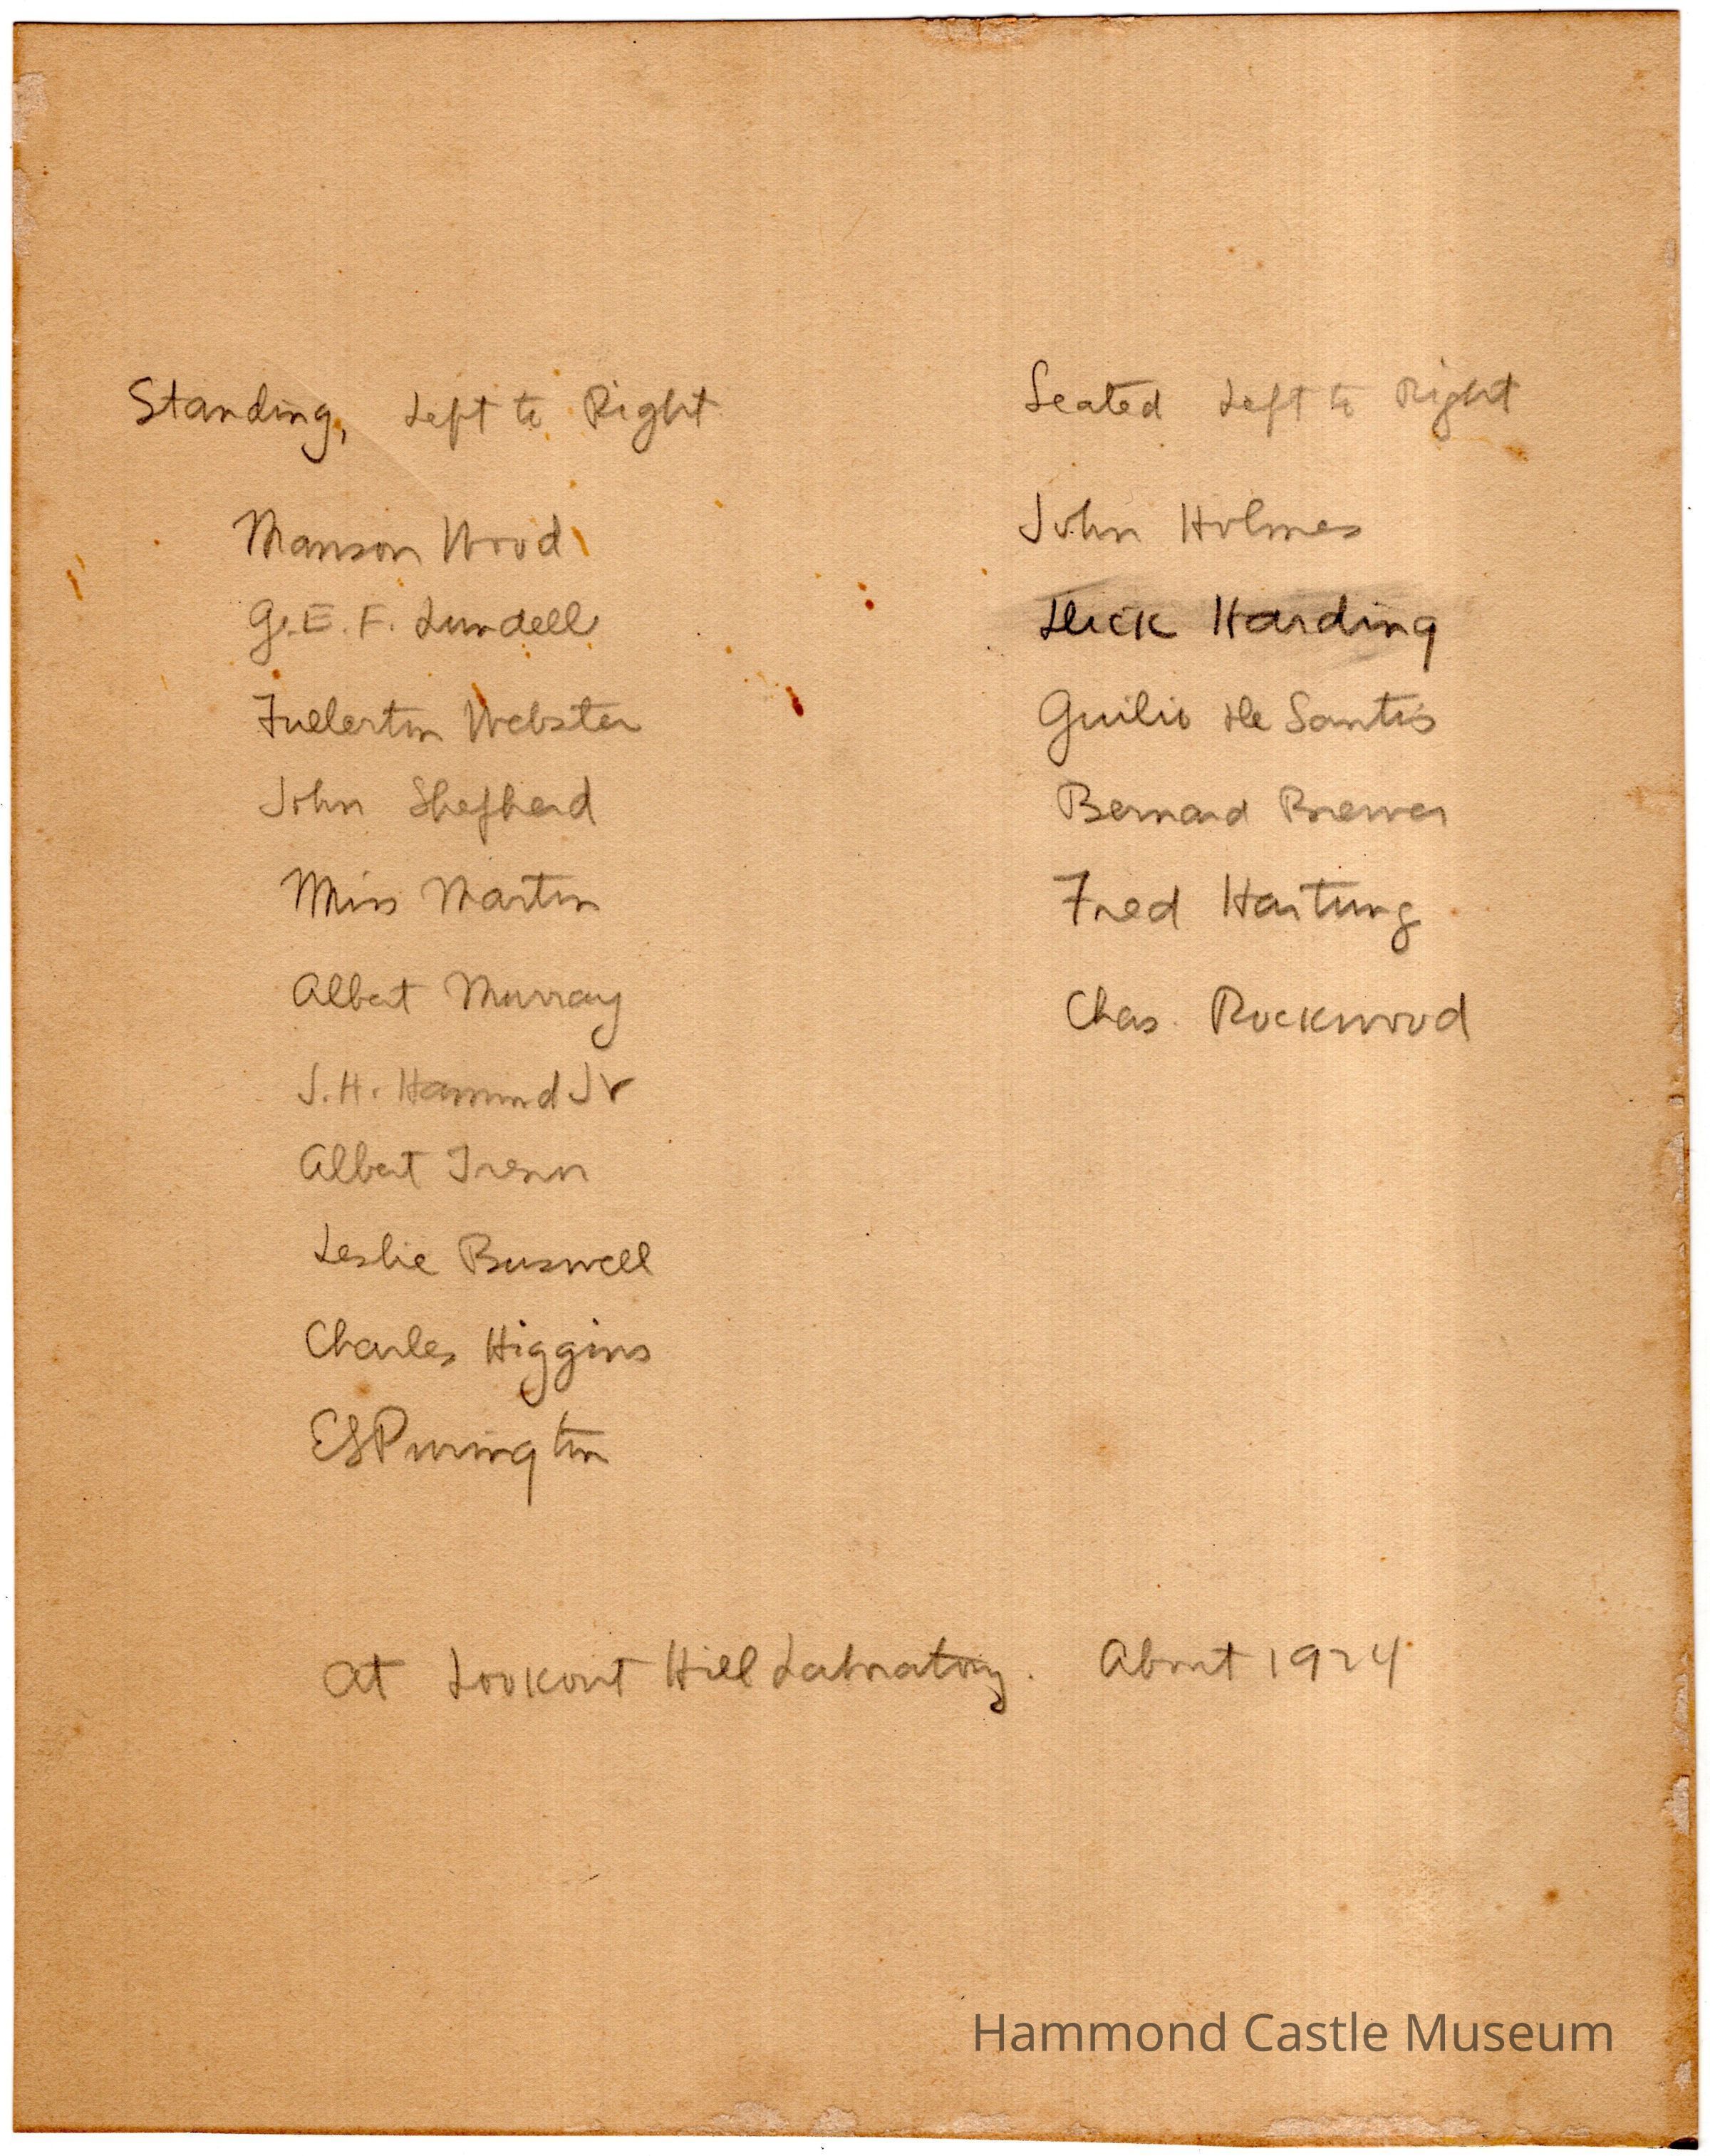 Standing, Left to Right
Manson Wood
G.E.F. Lundell
Fullerton Webster
John Shepherd
Miss Martin
Albert Murray
J.H. Hammond Jr
Albert
Leslie Buswell
Charles Higgins
ESPurington
Seated Left to Right
John Holmes
Dick Harding
Guilio de Santis
Bernard Brewer
Fred Hartung
Chas. Rockwood
At Lookout Hill Laboratory. About 1924
Hammond Castle Museum